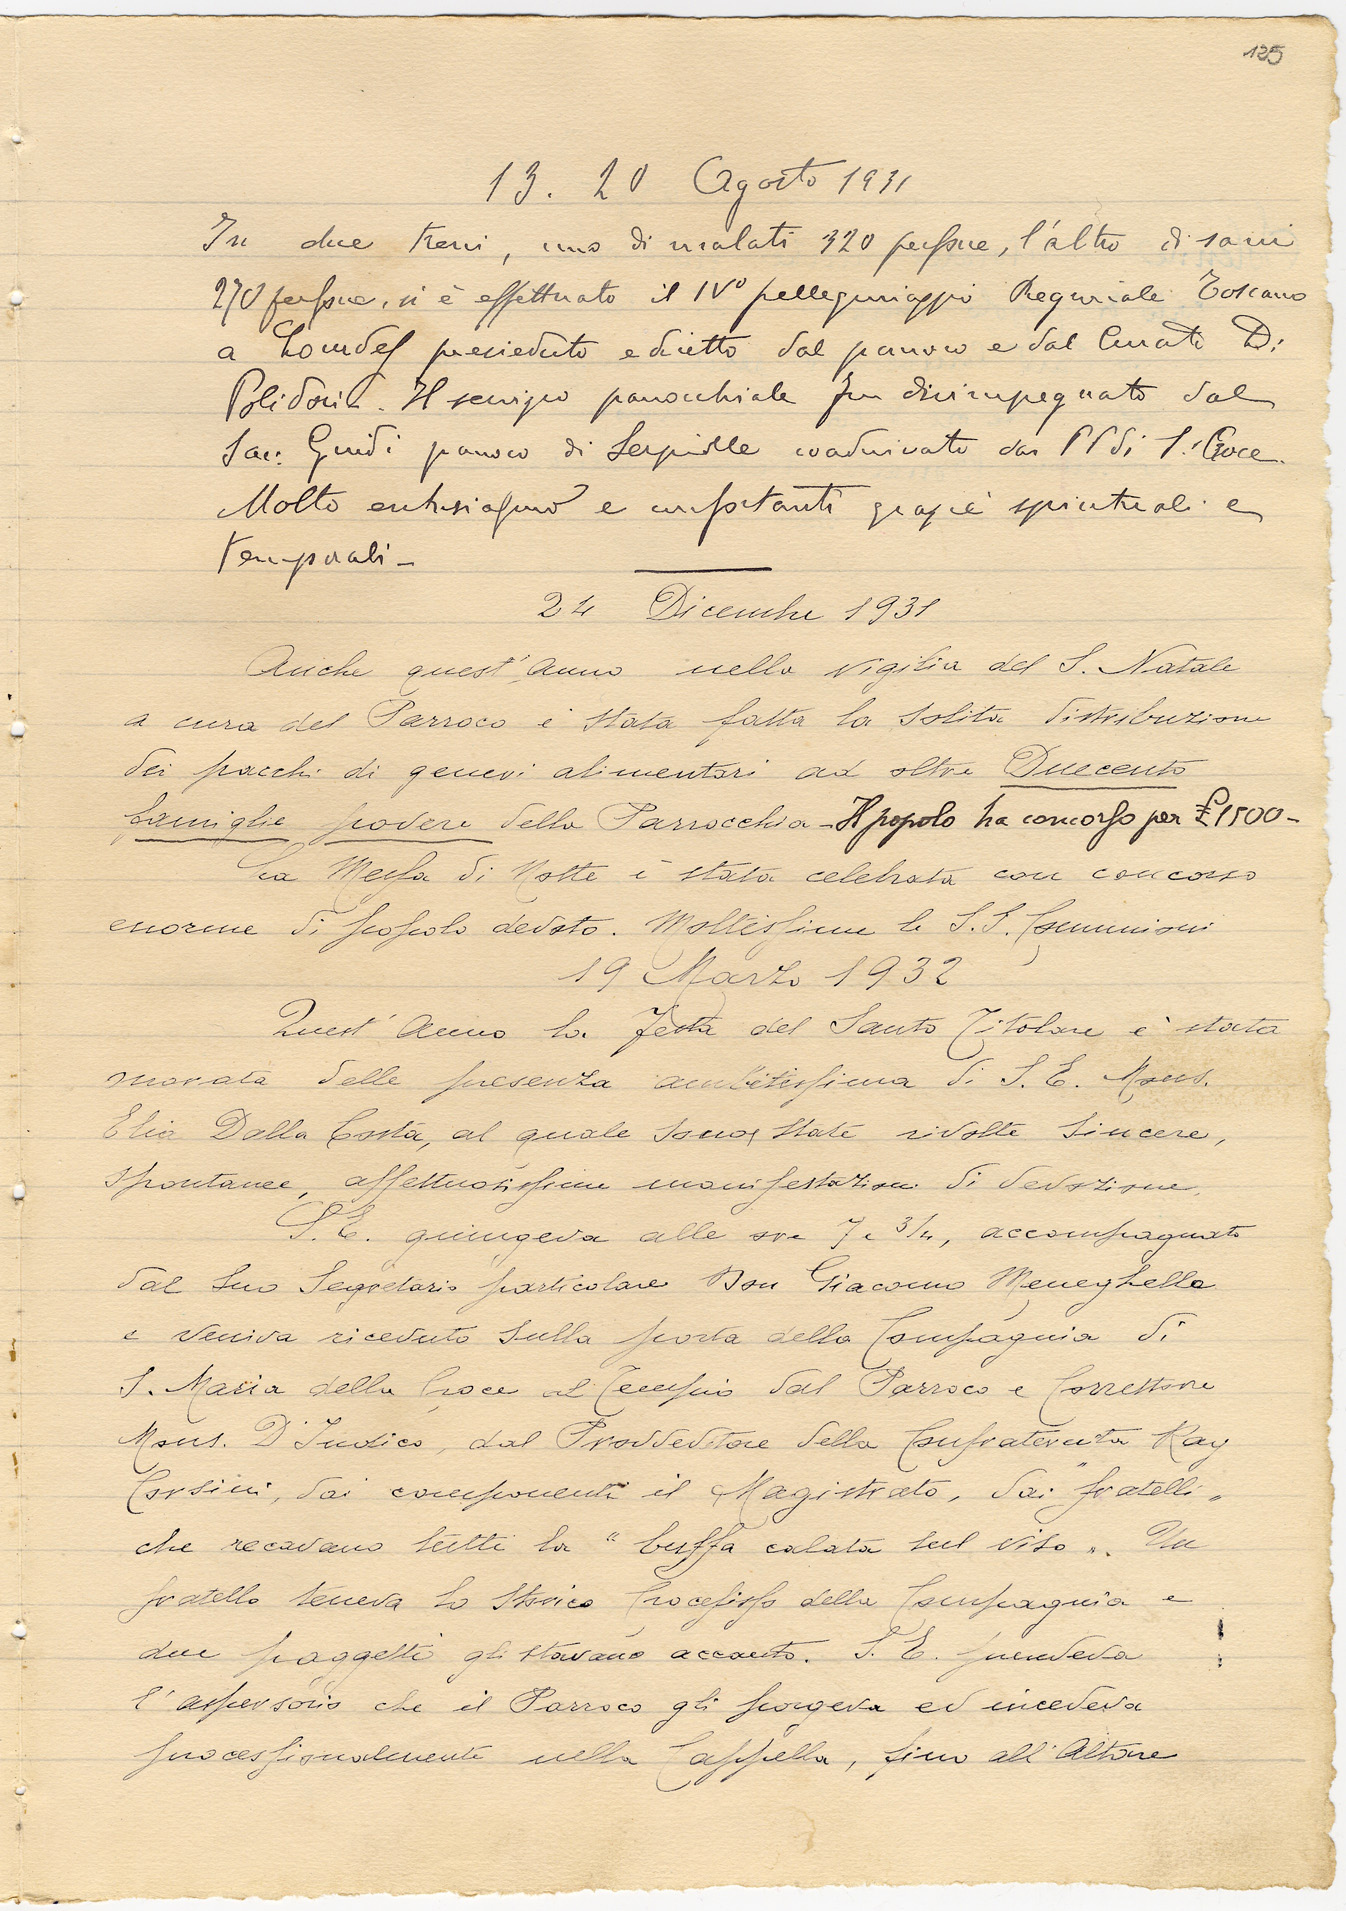 125
13. 20 Agosto 1931
In due treni, uno di malati 320 persone, l'altro di sani
270 persone, si è effettuato il IVº pellegrinaggio Regionale Toscano
a Lourdes presieduto e diretto dal parroco e dal Curato D.
Polidori. Il servizio parrocchiale fu disimpegnato dal
Sac. Guidi parroco di Serpiolle coadiuvato dai PP di S. Croce.
Molto entusiasmo e importanti grazie spirituali e
temporali -
24 Dicembre 1931
Anche quest'Anno nella vigilia del S. Natale
a cura del Parroco è stata fatta la solita distribuzione
dei pacchi di generi alimentari ad oltre Duecento
famiglie povere della Parrocchia - Il popolo ha concorso per £ 1500 -
La Messa di Notte è stata celebrata con concorso
enorme di popolo devoto. Moltissime le S.S. Comunioni
19 Marzo 1932
Quest'Anno la Festa del Santo Titolare è stata
onorata della presenza ambitissima di S. E. Mons.
Elia Dalla Costa, al quale sono state rivolte sincere,
spontanee, affettuosissime manifestazioni di devozione.
S. E. giungeva alle ore 7 e 3/4, accompagnato
dal Suo Segretario particolare Don Giacomo Meneghello
e veniva ricevuto sulla porta della Compagnia di
S. Maria della Croce al Tempio dal Parroco e Correttore
Mons. D'Indico, dal Provveditore della Confraternita Rag
Corsini, dai componenti il Magistrato, dai "fratelli"
che recavano tutti la "buffa calata sul viso". Un
fratello teneva lo storico Crocefisso della Compagnia e
due paggetti gli stavano accanto. S. E. prendeva
l'aspersorio che il Parroco gli porgeva ed incedeva
processionalmente nella Cappella, fino all'Altare